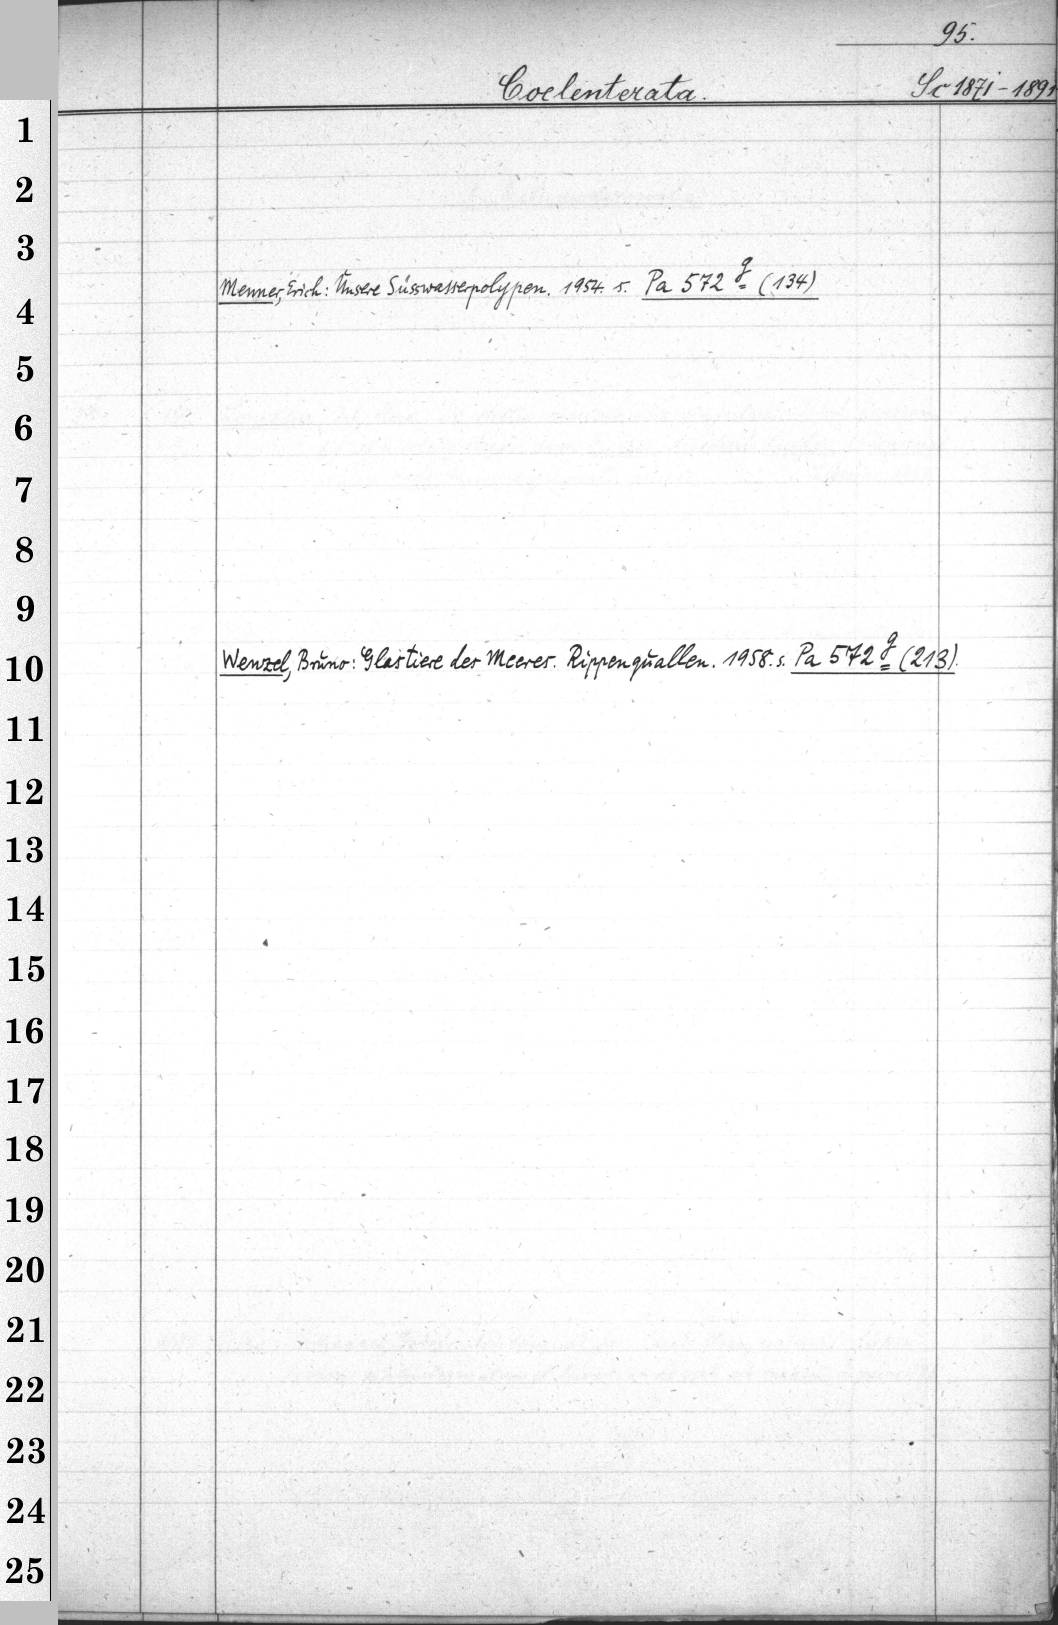 95.
Coelenterata. Sc 1871-1891
1
2
3
Menner, Erich: Unsere Süsswasserpolypen. 1954. s. Pa 572 g (134)
4
5
6
7
8
9
Wenzel, Bruno: Glastiere des Meeres. Rippenquallen. 1958. s. Pa 572 g (213).
10
11
12
13
14
15
16
17
18
19
20
21
22
23
24
25